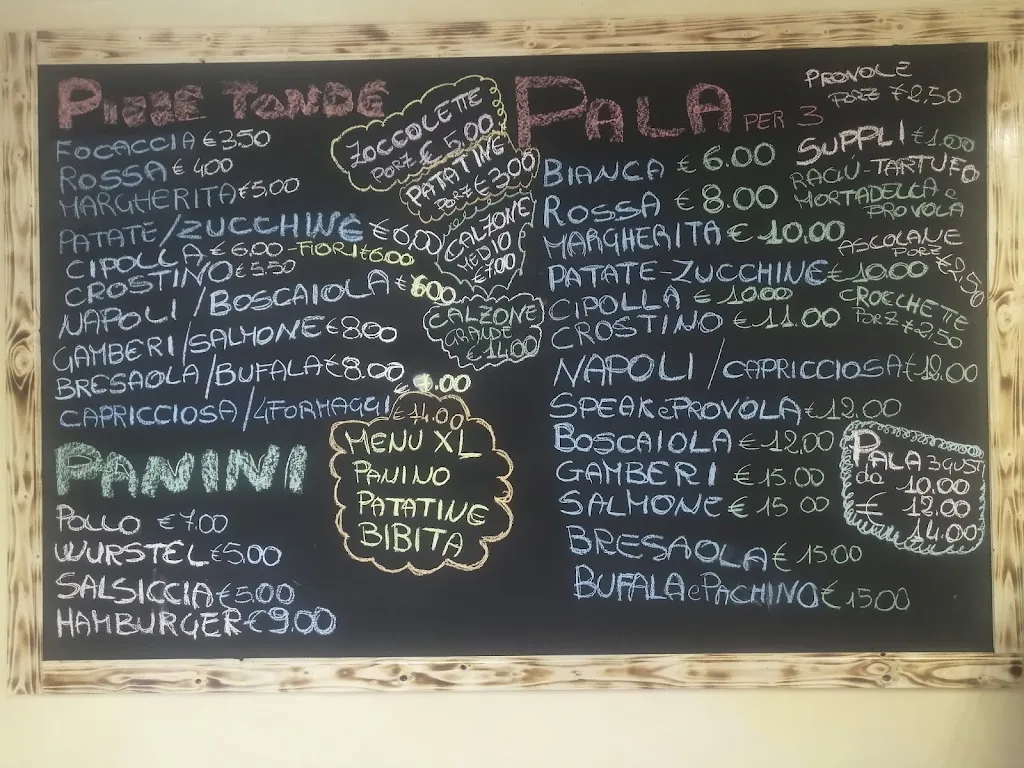 PIZZE TONDE
FOCACCIA € 3.50
ROSSA € 4.00
MARGHERITA € 5,00
PATATE/ZUCCHINE € 6,00
CIPOLLA € 6.00 - FIORI € 6.00
CROSTINO € 5,50
NAPOLI/BOSCAIOLA € 600
GAMBERI/SALMONE € 8.00
BRESAOLA/BUFALA € 8.00
CAPRICCIOSA/4FORMAGGI € 7.00
ZOCCOLETTE
PORZ € 5,00
PATATINE
PORZ € 3,00
CALZONE
MEDIO
€ 7.00
CALZONE
GRANDE
€ 14.00
PANINI
POLLO € 7.00
WURSTEL € 5.00
SALSICCIA € 5.00
HAMBURGER € 9.00
€ 14.00
MENU XL
PANINO
PATATINE
BIBITA
PALA PER 3
BIANCA € 6.00
ROSSA € 8.00
MARGHERITA € 10.00
PATATE-ZUCCHINE € 10.00
CIPOLLA € 10.00
CROSTINO € 11.00
NAPOLI/CAPRICCIOSA € 12.00
SPEAK e PROVOLA € 12.00
BOSCAIOLA € 12,00
GAMBERI € 15.00
SALMONE € 15 00
BRESAOLA € 15 00
BUFALA e PACHINO € 15 00
PROVOLE
PORZ € 2,50
SUPPLI € 1.00
RAGÙ-TARTUFO
MORTADELLA e
PROVOLA
ASCOLANE
PORZ € 2,50
CROCHETTE
PORZ € 2,50
PALA 3 GUSTI
da 10.00
€ 12.00
14.00